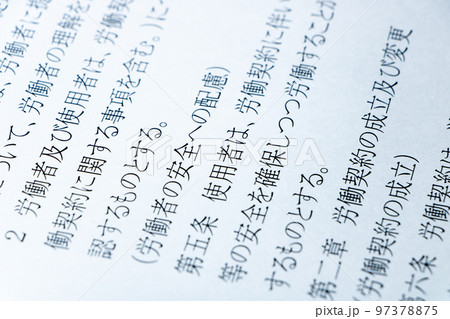 は、労働者に提
ついて、労働者の理解を
2 労働者及び使用者は、労働契
働契約に関する事項を含む。)に
認するものとする。
(労働者の安全への配慮)
第五条 使用者は、労働契約に伴い
等の安全を確保しつつ労働することが
するものとする。
第二章 労働契約の成立及び変更
(労働契約の成立)
第六条 労働契約は、
PIXTA
pixta.jp - 97378875